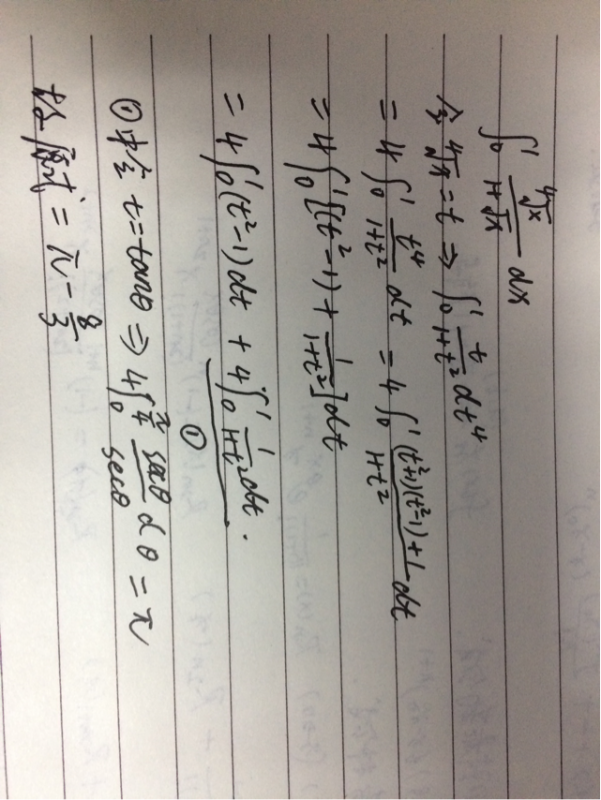 ∫₀¹ ⁴√x / (1+√x) dx
令 ⁴√x = t ⇒ ∫₀¹ t/(1+t²) dt⁴
= 4∫₀¹ t⁴/(1+t²) dt = 4∫₀¹ ((t²+1)(t²-1)+1)/(1+t²) dt
= 4∫₀¹ [(t²-1) + 1/(1+t²)] dt
= 4∫₀¹ (t²-1)dt + 4∫₀¹ 1/(1+t²) dt.
①
①中令 t=tanθ ⇒ 4∫₀^(π/4) secθ/secθ dθ = π
故原式 = π - 8/3